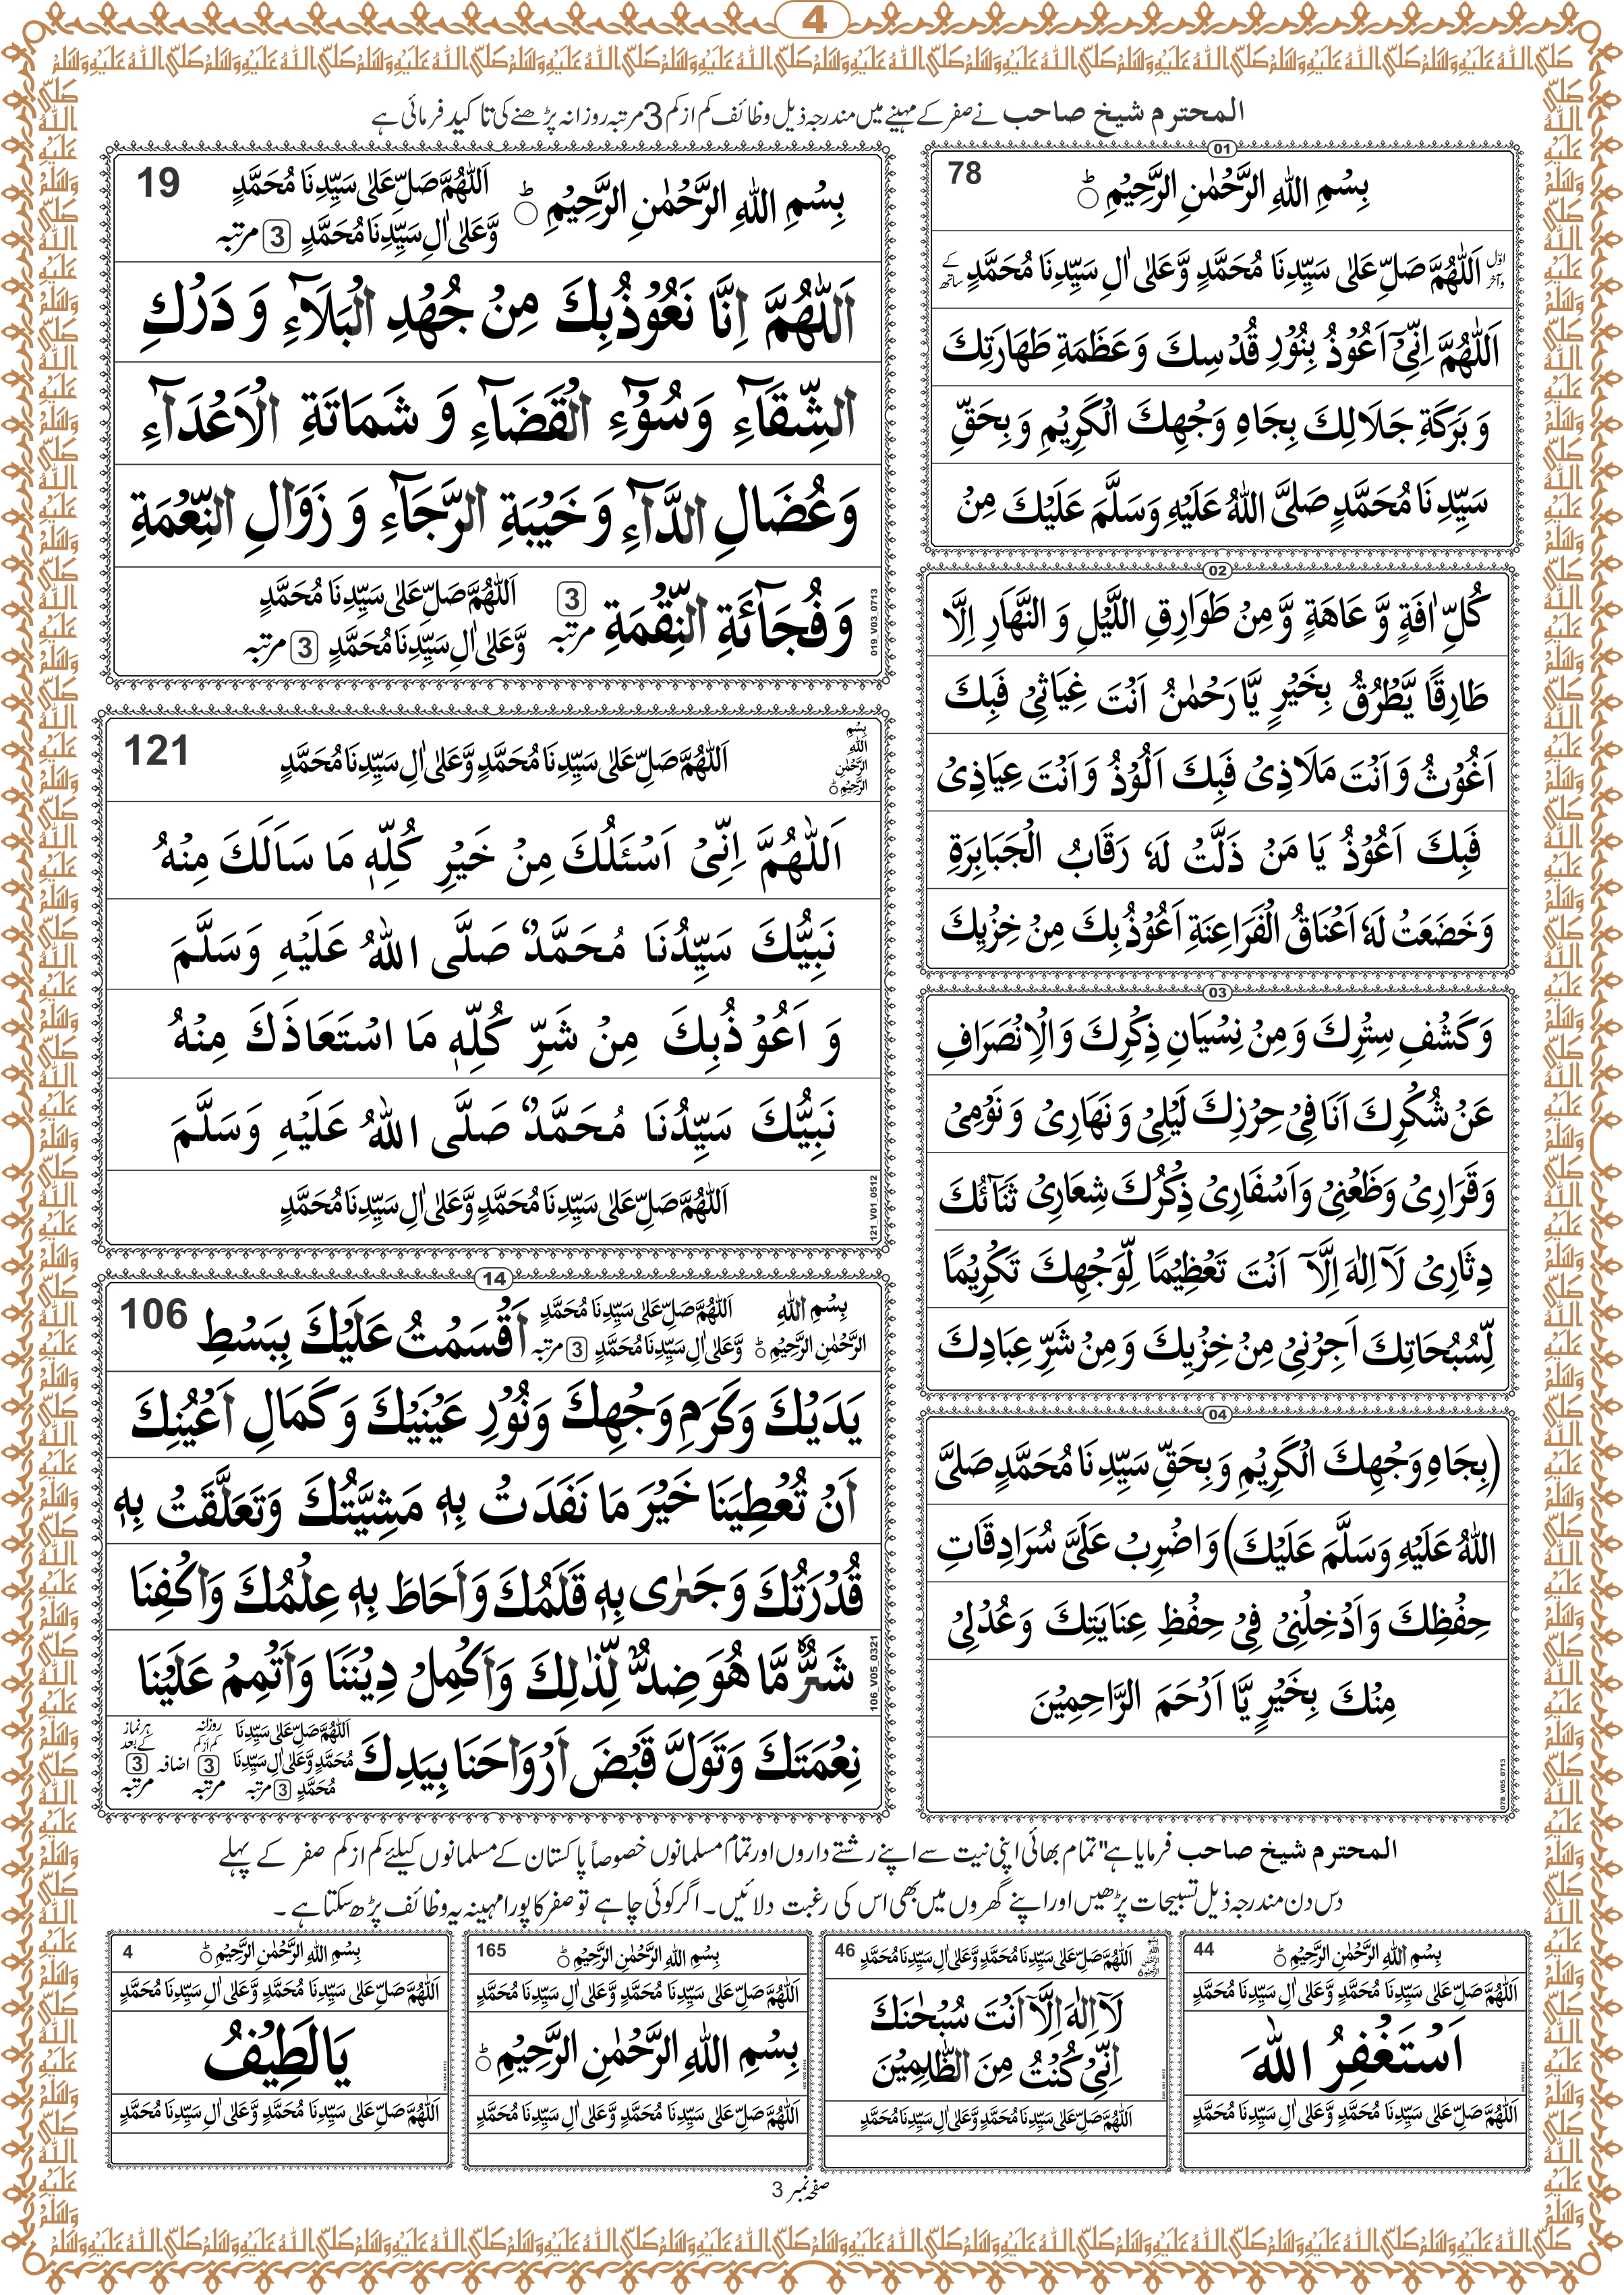 4
صَلَّى اللهُ عَلَيْهِ وَسَلَّمْ صَلَّى اللهُ عَلَيْهِ وَسَلَّمْ صَلَّى اللهُ عَلَيْهِ وَسَلَّمْ صَلَّى اللهُ عَلَيْهِ وَسَلَّمْ صَلَّى اللهُ عَلَيْهِ وَسَلَّمْ صَلَّى اللهُ عَلَيْهِ وَسَلَّمْ صَلَّى اللهُ عَلَيْهِ وَسَلَّمْ صَلَّى اللهُ عَلَيْهِ وَسَلَّمْ صَلَّى اللهُ عَلَيْهِ وَسَلَّمْ صَلَّى اللهُ عَلَيْهِ وَسَلَّمْ
المحترم شیخ صاحب نے صفر کے مہینے میں مندرجہ ذیل وظائف کم از کم 3 مرتبہ روزانہ پڑھنے کی تاکید فرمائی ہے
01
78
بِسْمِ اللهِ الرَّحْمٰنِ الرَّحِيْمِ ؕ
اوّل و آخر اَللّٰهُمَّ صَلِّ عَلٰى سَيِّدِنَا مُحَمَّدٍ وَّعَلٰى اٰلِ سَيِّدِنَا مُحَمَّدٍ کے ساتھ
اَللّٰهُمَّ اِنِّيْٓ اَعُوْذُ بِنُوْرِ قُدْسِكَ وَعَظَمَةِ طَهَارَتِكَ
وَ بَرَكَةِ جَلَالِكَ بِجَاهِ وَجْهِكَ الْكَرِيْمِ وَ بِحَقِّ
سَيِّدِنَا مُحَمَّدٍ صَلَّى اللهُ عَلَيْهِ وَسَلَّمَ عَلَيْكَ مِنْ
02
كُلِّ اٰفَةٍ وَّ عَاهَةٍ وَّ مِنْ طَوَارِقِ اللَّيْلِ وَ النَّهَارِ اِلَّا
طَارِقًا يَّطْرُقُ بِخَيْرٍ يَّا رَحْمٰنُ اَنْتَ غِيَاثِيْ فَبِكَ
اَغُوْثُ وَ اَنْتَ مَلَاذِيْ فَبِكَ اَلُوْذُ وَ اَنْتَ عِيَاذِيْ
فَبِكَ اَعُوْذُ يَا مَنْ ذَلَّتْ لَهٗ رِقَابُ الْجَبَابِرَةِ
وَخَضَعَتْ لَهٗ اَعْنَاقُ الْفَرَاعِنَةِ اَعُوْذُ بِكَ مِنْ خِزْيِكَ
03
وَكَشْفِ سِتْرِكَ وَ مِنْ نِسْيَانِ ذِكْرِكَ وَالْاِنْصَرَافِ
عَنْ شُكْرِكَ اَنَا فِيْ حِرْزِكَ لَيْلِيْ وَ نَهَارِيْ وَ نَوْمِيْ
وَ قَرَارِيْ وَظَعْنِيْ وَ اَسْفَارِيْ ذِكْرُكَ شِعَارِيْ ثَنَآئُكَ
دِثَارِيْ لَآ اِلٰهَ اِلَّآ اَنْتَ تَعْظِيْمًا لِّوَجْهِكَ تَكْرِيْمًا
لِّسُبُحَاتِكَ اَجِرْنِيْ مِنْ خِزْيِكَ وَ مِنْ شَرِّ عِبَادِكَ
04
(بِجَاهِ وَجْهِكَ الْكَرِيْمِ وَ بِحَقِّ سَيِّدِنَا مُحَمَّدٍ صَلَّى
اللهُ عَلَيْهِ وَسَلَّمَ عَلَيْكَ) وَ اضْرِبْ عَلَيَّ سُرَادِقَاتِ
حِفْظِكَ وَ اَدْخِلْنِيْ فِيْ حِفْظِ عِنَايَتِكَ وَعُدْلِيْ
مِنْكَ بِخَيْرٍ يَّا اَرْحَمَ الرَّاحِمِيْنَ
078_V05_0713
19
بِسْمِ اللهِ الرَّحْمٰنِ الرَّحِيْمِ ؕ اَللّٰهُمَّ صَلِّ عَلٰى سَيِّدِنَا مُحَمَّدٍ
وَّعَلٰى اٰلِ سَيِّدِنَا مُحَمَّدٍ 3 مرتبہ
اَللّٰهُمَّ اِنَّا نَعُوْذُ بِكَ مِنْ جُهْدِ الْبَلَاۤءِ وَ دَرْكِ
الشِّقَآءِ وَ سُوْٓءِ الْقَضَآءِ وَ شَمَاتَةِ الْاَعْدَآءِ
وَعُضَالِ الدَّآءِ وَ خَيْبَةِ الرَّجَآءِ وَ زَوَالِ النِّعْمَةِ
وَ فُجَآئَةِ النِّقْمَةِ 3 مرتبہ اَللّٰهُمَّ صَلِّ عَلٰى سَيِّدِنَا مُحَمَّدٍ
وَّعَلٰى اٰلِ سَيِّدِنَا مُحَمَّدٍ 3 مرتبہ
019_V03_0713
121
بِسْمِ اللهِ الرَّحْمٰنِ الرَّحِيْمِ ؕ
اَللّٰهُمَّ صَلِّ عَلٰى سَيِّدِنَا مُحَمَّدٍ وَّعَلٰى اٰلِ سَيِّدِنَا مُحَمَّدٍ
اَللّٰهُمَّ اِنِّيْ اَسْئَلُكَ مِنْ خَيْرِ كُلِّهٖ مَا سَاَلَكَ مِنْهُ
نَبِيُّكَ سَيِّدُنَا مُحَمَّدٌ صَلَّى اللهُ عَلَيْهِ وَسَلَّمَ
وَ اَعُوْذُ بِكَ مِنْ شَرِّ كُلِّهٖ مَا اسْتَعَاذَكَ مِنْهُ
نَبِيُّكَ سَيِّدُنَا مُحَمَّدٌ صَلَّى اللهُ عَلَيْهِ وَسَلَّمَ
اَللّٰهُمَّ صَلِّ عَلٰى سَيِّدِنَا مُحَمَّدٍ وَّعَلٰى اٰلِ سَيِّدِنَا مُحَمَّدٍ
121_V01_0512
14
106
بِسْمِ اللهِ الرَّحْمٰنِ الرَّحِيْمِ ؕ اَللّٰهُمَّ صَلِّ عَلٰى سَيِّدِنَا مُحَمَّدٍ وَّعَلٰى اٰلِ سَيِّدِنَا مُحَمَّدٍ 3 مرتبہ اَقْسَمْتُ عَلَيْكَ بِبَسْطِ
يَدَيْكَ وَكَرَمِ وَجْهِكَ وَنُوْرِ عَيْنَيْكَ وَ كَمَالِ اَعْيُنِكَ
اَنْ تُعْطِيَنَا خَيْرَ مَا نَفَدَتْ بِهٖ مَشِيَّتُكَ وَتَعَلَّقَتْ بِهٖ
قُدْرَتُكَ وَجَرٰى بِهٖ قَلَمُكَ وَاَحَاطَ بِهٖ عِلْمُكَ وَاكْفِنَا
شَرَّ مَّا هُوَ ضِدٌّ لِّذٰلِكَ وَاَكْمِلْ دِيْنَنَا وَاَتْمِمْ عَلَيْنَا
نِعْمَتَكَ وَتَوَلَّ قَبْضَ اَرْوَاحَنَا بِيَدِكَ اَللّٰهُمَّ صَلِّ عَلٰى سَيِّدِنَا مُحَمَّدٍ وَّعَلٰى اٰلِ سَيِّدِنَا مُحَمَّدٍ 3 مرتبہ روزانہ کم از کم 3 مرتبہ اضافہ ہر نماز کے بعد 3 مرتبہ
106_V05_0321
المحترم شیخ صاحب فرمایا ہے "تمام بھائی اپنی نیت سے اپنے رشتے داروں اور تمام مسلمانوں خصوصاً پاکستان کے مسلمانوں کیلئے کم از کم صفر کے پہلے
دس دن مندرجہ ذیل تسبیحات پڑھیں اور اپنے گھروں میں بھی اس کی رغبت دلائیں۔ اگر کوئی چاہے تو صفر کا پورا مہینہ یہ وظائف پڑھ سکتا ہے ۔
44
بِسْمِ اللهِ الرَّحْمٰنِ الرَّحِيْمِ ؕ
اَللّٰهُمَّ صَلِّ عَلٰى سَيِّدِنَا مُحَمَّدٍ وَّعَلٰى اٰلِ سَيِّدِنَا مُحَمَّدٍ
اَسْتَغْفِرُ اللهَ
اَللّٰهُمَّ صَلِّ عَلٰى سَيِّدِنَا مُحَمَّدٍ وَّعَلٰى اٰلِ سَيِّدِنَا مُحَمَّدٍ
46
اَللّٰهُمَّ صَلِّ عَلٰى سَيِّدِنَا مُحَمَّدٍ وَّعَلٰى اٰلِ سَيِّدِنَا مُحَمَّدٍ
لَآ اِلٰهَ اِلَّآ اَنْتَ سُبْحٰنَكَ
اِنِّيْ كُنْتُ مِنَ الظَّالِمِيْنَ
اَللّٰهُمَّ صَلِّ عَلٰى سَيِّدِنَا مُحَمَّدٍ وَّعَلٰى اٰلِ سَيِّدِنَا مُحَمَّدٍ
165
بِسْمِ اللهِ الرَّحْمٰنِ الرَّحِيْمِ ؕ
اَللّٰهُمَّ صَلِّ عَلٰى سَيِّدِنَا مُحَمَّدٍ وَّعَلٰى اٰلِ سَيِّدِنَا مُحَمَّدٍ
بِسْمِ اللهِ الرَّحْمٰنِ الرَّحِيْمِ ؕ
اَللّٰهُمَّ صَلِّ عَلٰى سَيِّدِنَا مُحَمَّدٍ وَّعَلٰى اٰلِ سَيِّدِنَا مُحَمَّدٍ
4
بِسْمِ اللهِ الرَّحْمٰنِ الرَّحِيْمِ ؕ
اَللّٰهُمَّ صَلِّ عَلٰى سَيِّدِنَا مُحَمَّدٍ وَّعَلٰى اٰلِ سَيِّدِنَا مُحَمَّدٍ
يَالَطِيْفُ
اَللّٰهُمَّ صَلِّ عَلٰى سَيِّدِنَا مُحَمَّدٍ وَّعَلٰى اٰلِ سَيِّدِنَا مُحَمَّدٍ
صفحہ نمبر 3
صَلَّى اللهُ عَلَيْهِ وَسَلَّمْ صَلَّى اللهُ عَلَيْهِ وَسَلَّمْ صَلَّى اللهُ عَلَيْهِ وَسَلَّمْ صَلَّى اللهُ عَلَيْهِ وَسَلَّمْ صَلَّى اللهُ عَلَيْهِ وَسَلَّمْ صَلَّى اللهُ عَلَيْهِ وَسَلَّمْ صَلَّى اللهُ عَلَيْهِ وَسَلَّمْ صَلَّى اللهُ عَلَيْهِ وَسَلَّمْ صَلَّى اللهُ عَلَيْهِ وَسَلَّمْ صَلَّى اللهُ عَلَيْهِ وَسَلَّمْ